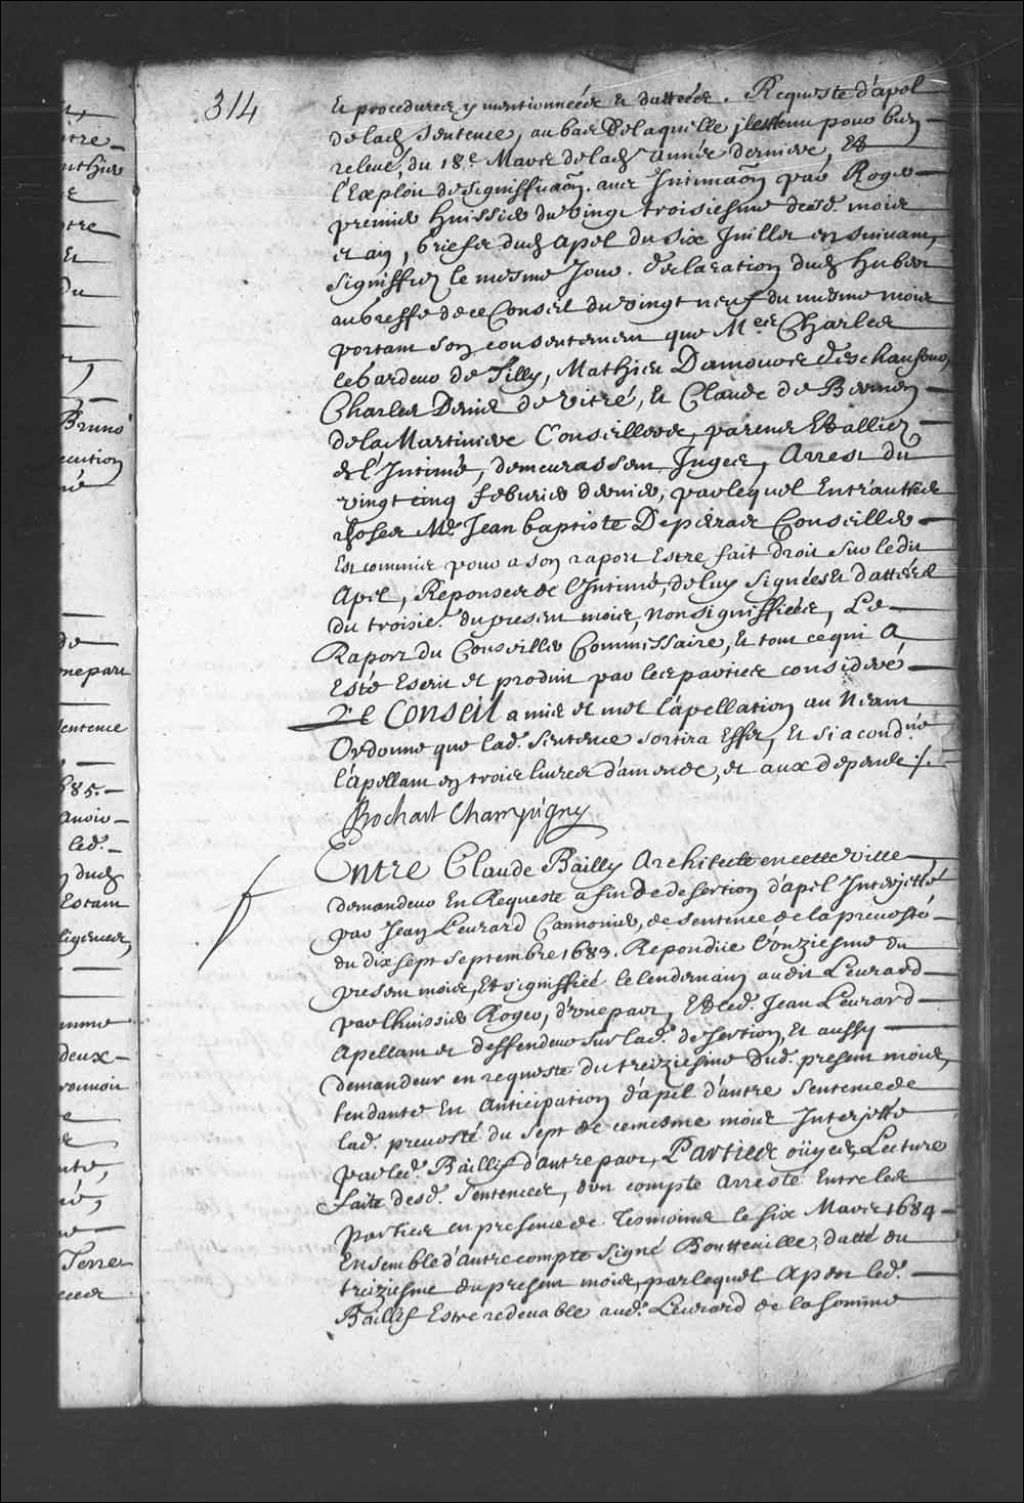 314
Et procedures y mentionnéés et dattéés. Requeste d'apel
de lad. sentence, au bas de laquelle il est tenu pour bien
relevé, du 18e Mars de lad. année derniere, Et
l'Exploit de signiffica͠on. avec Intima͠on par Roger
premier huissier du vingt troisiesme desd. mois
et an, briefs dud. apel du six Juillet ensuivant,
signiffiez le mesme Jour. declaration dud. hubert
au greffe de ce Conseil du vingt neuf du mesme mois
portant son consentement que Mes. Charles
le gardeur de Tilly, Mathieu Damours deschaufour,
Charles Denis de Vitré, Et Claude de Bermen
de la Martiniere Conseillers, parens Et alliez
de l'Intimé, demeurassent Juges, Arrest du
vingt cinq feburier dernier, par lequel Entr'autres
choses Me. Jean baptiste Depeiras Conseiller
Est commis pour a son raport Estre fait droit sur ledit
Apel, Reponses de l'Intimé, de luy signéés Et dattéés
du troisie. du present mois, non signiffiéés, Le
Raport du Conseiller Commissaire, Et tout ce qui a
Esté Escrit et produit par les parties consideré
Le Conseil a mis et met l'apellation au Neant
Ordonne que lad. sentence sortira Effet, Et si a condné
l'apellant en trois livres d'amende, et aux depens ./.
Bochart Champigny
Entre Claude Bailly Architecte en cette ville
demandeur En Requeste afin de desertion d'apel Interjetté
par Jean Leurard Cannonier, de sentence de la prevosté
du dix sept septembre 1683. Repondüe l'onziesme du
present mois, Et signiffiéé le lendemain audit Leurard
par l'huissier Roger, d'une part, Et led. Jean Leurard
Apellant et deffendeur sur lad. desertion, Et aussy
demandeur en requeste du treiziesme dud. present mois,
tendante En anticipation d'apel d'autre sentence de
lad. prevosté du sept de ce mesme mois Interjetté
par led. Baillif d'autre part, Parties oüyes, Lecture
faite desd. sentences, d'un compte arresté Entre les
parties en presence de Tesmoins le six Mars 1684
Ensemble d'autre compte signé Boutteuille, datté du
treiziesme du present mois, par lequel Apert led.
Baillif Estre redevable aud. Leurard de la somme